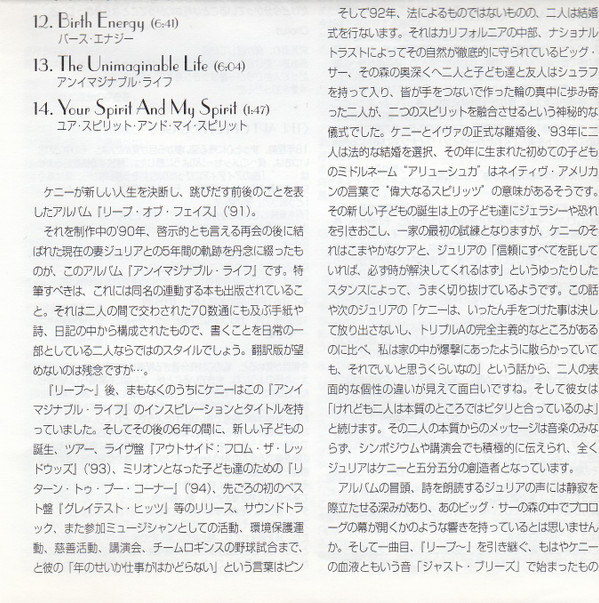 12. Birth Energy (6:41)
バース・エナジー
13. The Unimaginable Life (6:04)
アンイマジナブル・ライフ
14. Your Spirit And My Spirit (1:47)
ユア・スピリット・アンド・マイ・スピリット
ケニーが新しい人生を決断し、跳びだす前後のことを表
したアルバム『リープ・オブ・フェイス』('91)。
それを制作中の'90年、啓示的とも言える再会の後に結
ばれた現在の妻ジュリアとの5年間の軌跡を丹念に綴ったも
のが、このアルバム『アンイマジナブル・ライフ』です。特
筆すべきは、これには同名の連動する本も出版されているこ
と。それは二人の間で交わされた70数通にも及ぶ手紙や
詩、日記の中から構成されたもので、書くことを日常の一
部としている二人ならではのスタイルでしょう。翻訳版が望
めないのは残念ですが…。
『リープ〜』後、まもなくのうちにケニーはこの『アンイ
マジナブル・ライフ』のインスピレーションとタイトルを持
っていました。そしてその後の6年の間に、新しい子どもの
誕生、ツアー、ライヴ盤『アウトサイド：フロム・ザ・レッ
ドウッズ』('93)、ミリオンとなった子ども達のための『リ
ターン・トゥ・プー・コーナー』('94)、先ごろの初のベス
ト盤『グレイテスト・ヒッツ』等のリリース、サウンドトラ
ック、また参加ミュージシャンとしての活動、環境保護運
動、慈善活動、講演会、チームロギンスの野球試合まで、
と彼の「年のせいか仕事がはかどらない」という言葉はピン
そして'92年、法によるものではないものの、二人は結婚
式を行ないます。それはカリフォルニアの中部、ナショナル
トラストによってその自然が徹底的に守られているビッグ・
サー、その森の奥深くへ二人と子ども達と友人はシュラフ
を持って入り、皆が手をつないで作った輪の真中に歩み寄
った二人が、二つのスピリットを融合させるという神秘的な
儀式でした。ケニーとイヴァの正式な離婚後、'93年に二
人は法的な結婚を選択、その年に生まれた初めての子ども
のミドルネーム“アリューシュガ”はネイティヴ・アメリカ
ンの言葉で“偉大なるスピリッツ”の意味があるそうです。
その新しい子どもの誕生は上の子ども達にジェラシーや恐れ
を引きおこし、一家の最初の試練となりますが、ケニーのそ
れはこまやかなケアと、ジュリアの「信頼にすべてを託して
いれば、必ず時が解決してくれるはず」というゆったりした
スタンスによって、うまく切り抜けているようです。この話
や次のジュリアの「ケニーは、いったん手をつけた事は決し
て放り出さないし、トリプルAの完全主義的なところがある
のに比べ、私は家の中が爆撃にあったように散らかっていて
も、それでいいと思うくらいなの」という話から、二人の表
面的な個性の違いが見えて面白いですね。そして彼女は
「けれども二人は本質のところではピタリと合っているのよ」
と続けます。その二人の本質からのメッセージは音楽のみな
らず、シンポジウムや講演会でも積極的に伝えられ、全く
ジュリアはケニーと五分五分の創造者となっています。
アルバムの冒頭、詩を朗読するジュリアの声には静寂を
際立たせる深みがあり、あのビッグ・サーの森の中でプロロ
ーグの幕が開くかのような響きを持っているとは思いません
か。そして一曲目、『リープ〜』を引き継ぐ、もはやケニー
の血液ともいう音「ジャスト・ブリーズ」で始まったもの